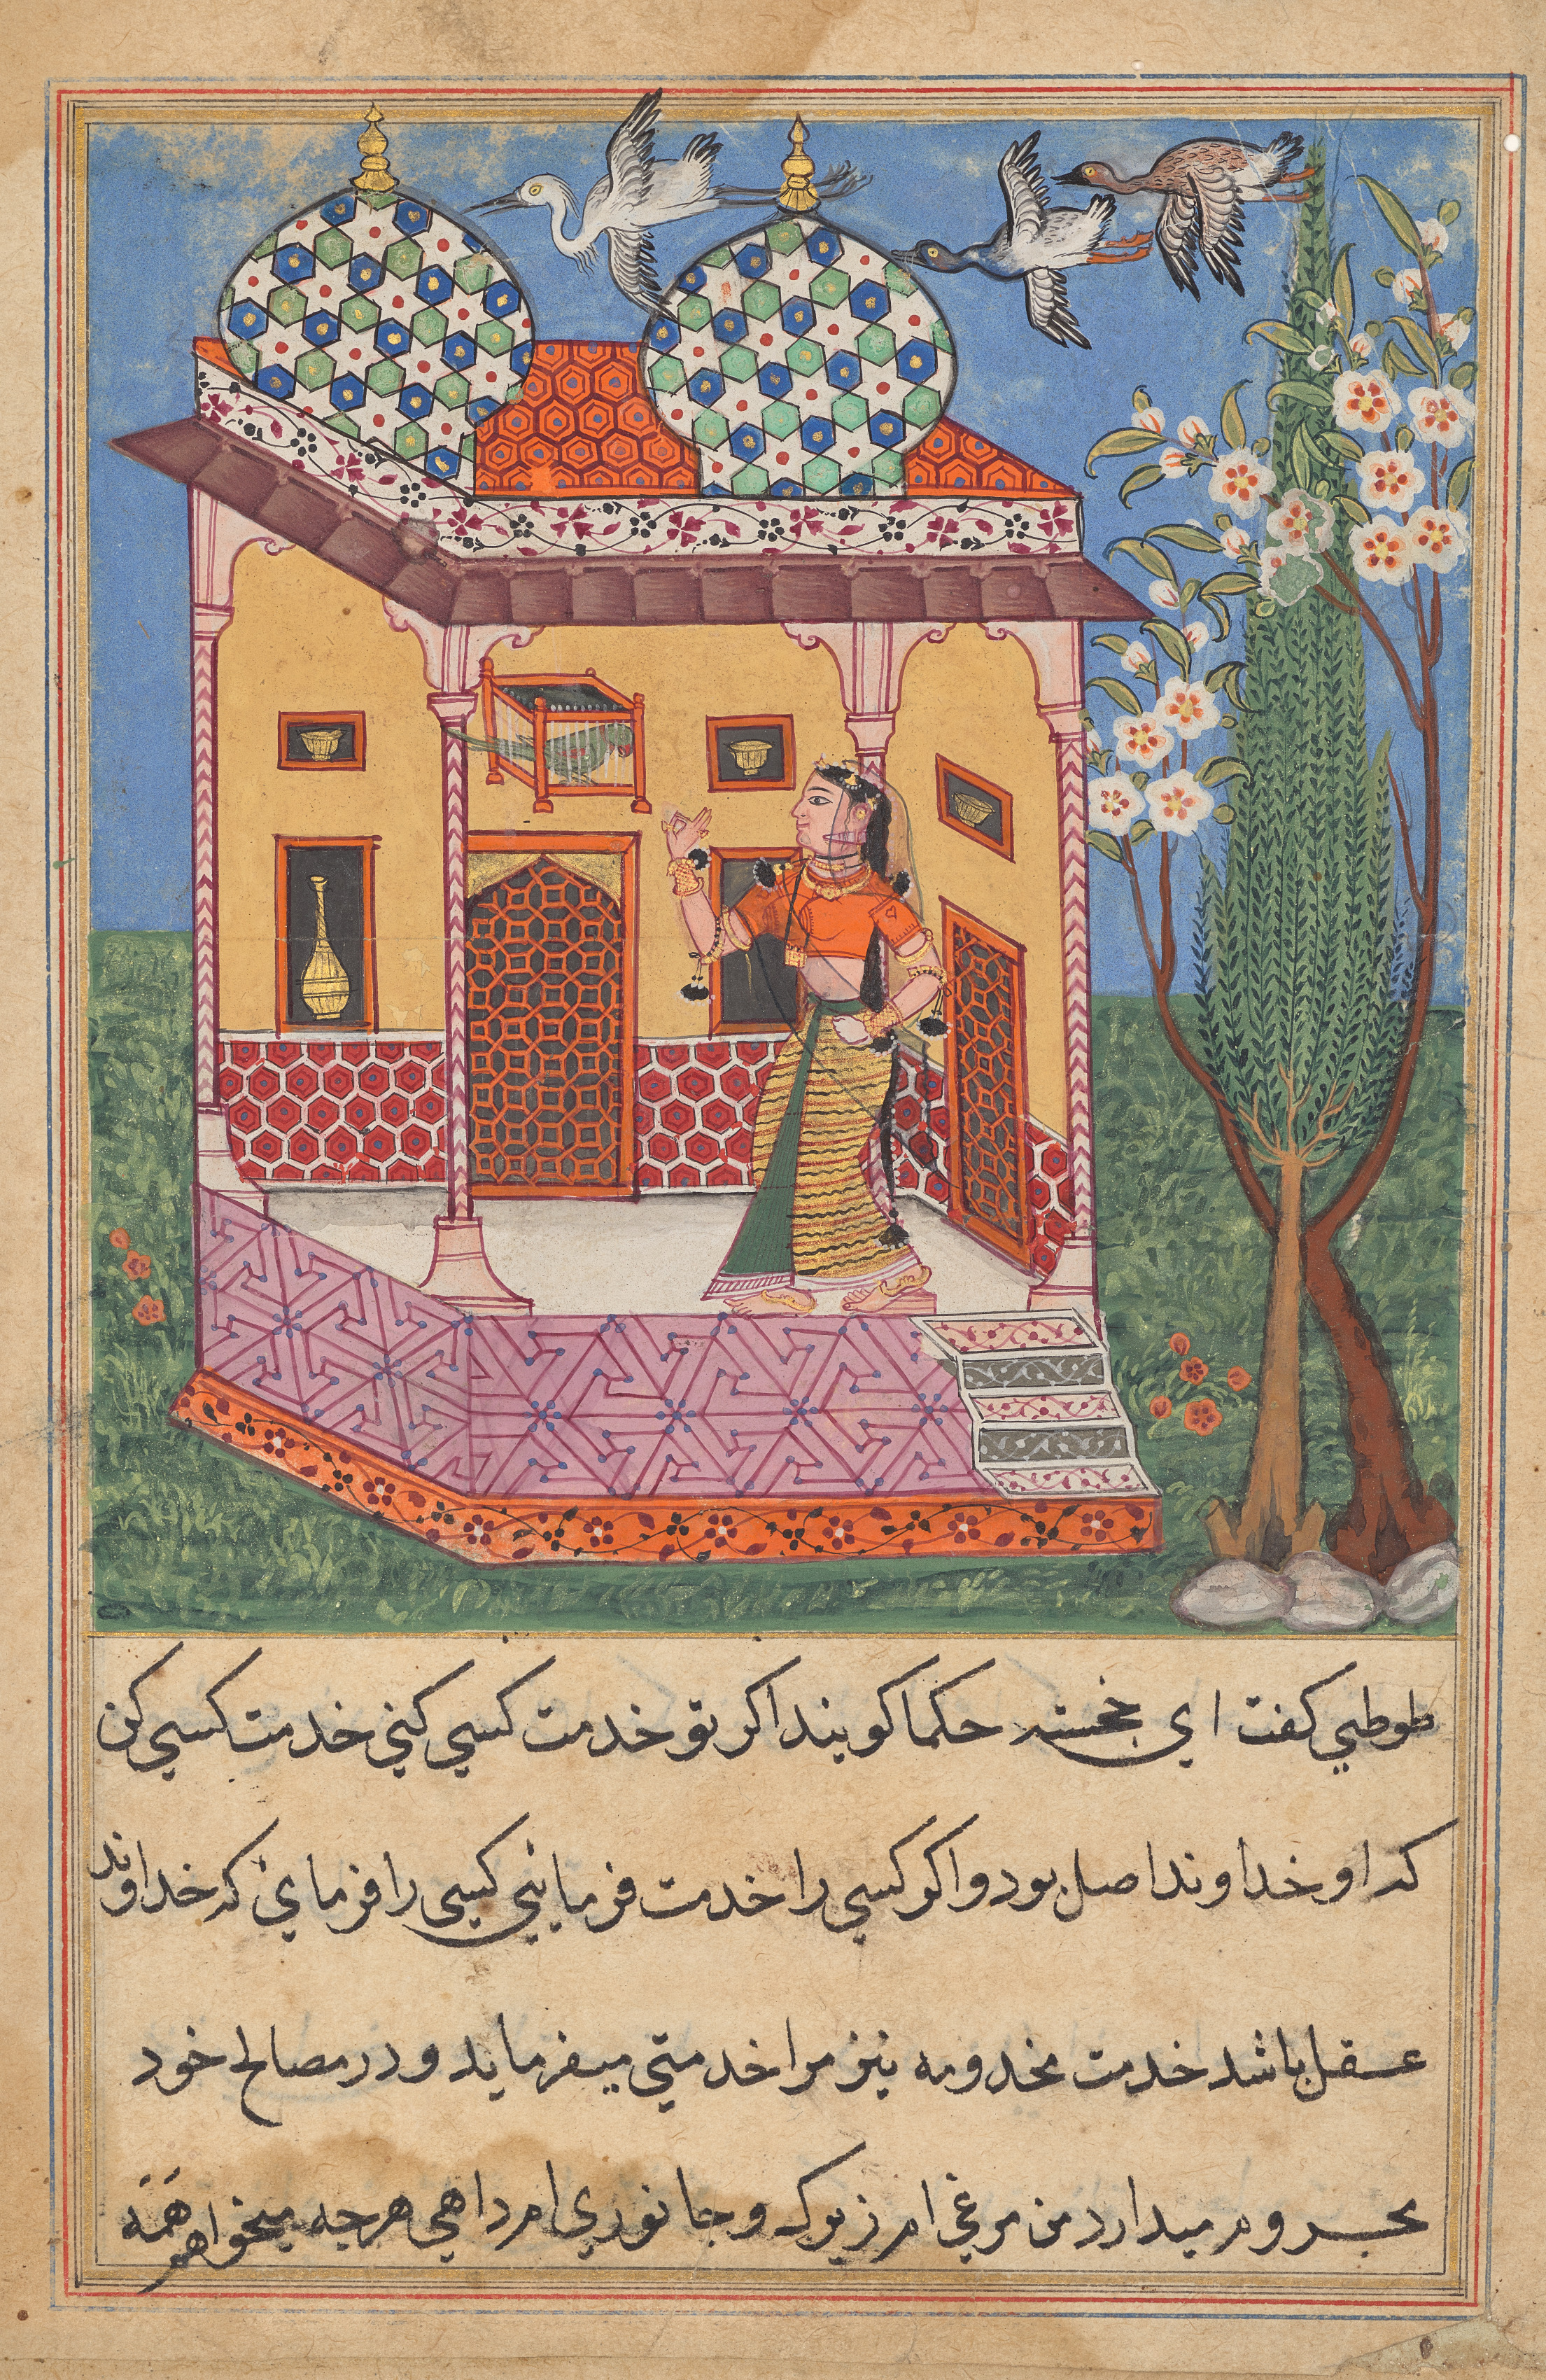 طوطي كفت اي خجسته حكما كويند اكر تو خدمت كسي كني خدمت كسي كن
كه او خداوند اصل بود و اكر كسي را خدمت فرمائي كسي را فرماي كه خداوند
عقل باشد خدمت مخدومه نيز مرا خدمتي ميفرمايد و در مصالح خود
محروم ميدارد من مرغي ام زيرك و جانوري ام داهي هرچه ميخواهم همه